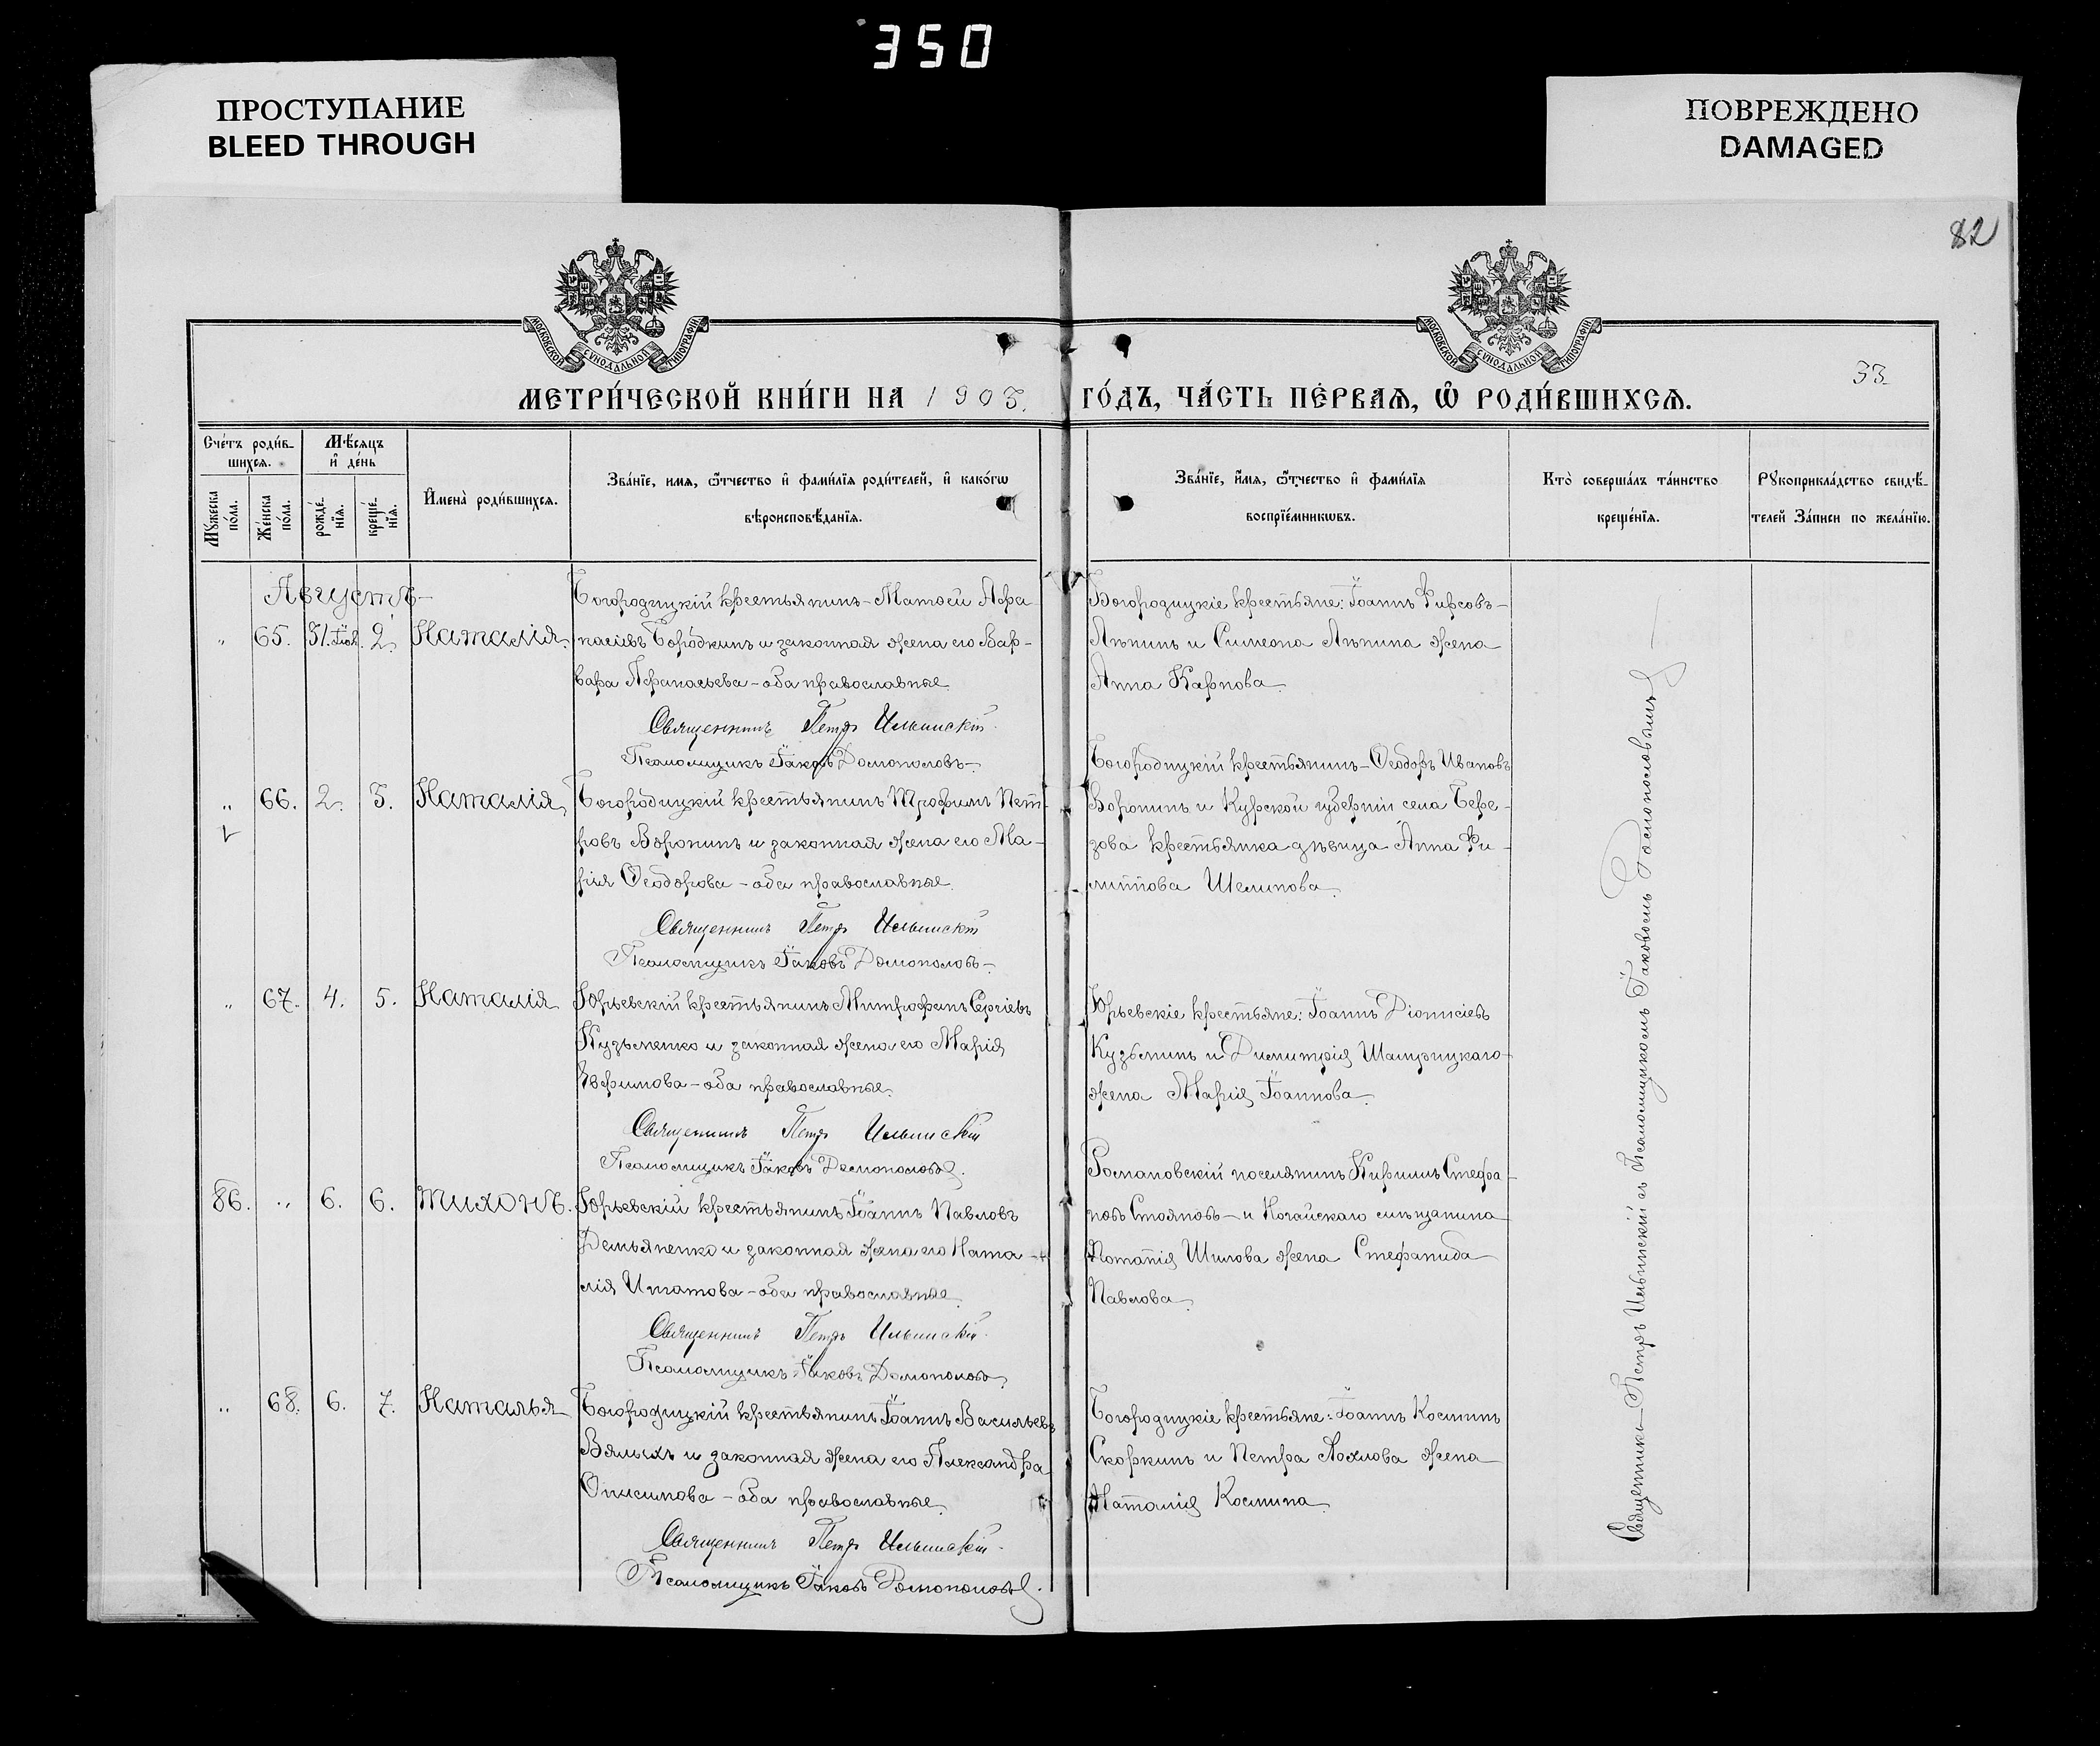 350
ПРОСТУПАНИЕ
BLEED THROUGH
ПОВРЕЖДЕНО
DAMAGED
82
МОСКОВСКОЙ СѴНОДАЛЬНОЙ ТИПОГРАФІИ
МОСКОВСКОЙ СѴНОДАЛЬНОЙ ТИПОГРАФІИ
33
МЕТРИ́ЧЕСКОЙ КНИ́ГИ НА 1903. ГО́ДЪ, ЧА́СТЬ ПЕ́РВАѦ, Ѡ҆ РОДИ́ВШИХСѦ.
Сче́тъ роди́в-
шихсѧ.
Мѣ́сѧцъ
и҆ де́нь
Мꙋ́жеска
по́ла.
Же́нска
по́ла.
рожде́-
нїѧ.
креще́-
нїѧ.
И҆мена̀ роди́вшихсѧ.
Зва́нїе, имѧ, ѻ҆́тчество и҆ фами́лїѧ роди́телей, и҆ како́гѡ
вѣроисповѣ́данїѧ.
Зва́нїе, и҆́мѧ, ѻ҆́тчество и҆ фами́лїѧ
воспрїе́мникѡвъ.
Кто̀ соверша́лъ та́инство
креще́нїѧ.
Рꙋкоприкла́дство свидѣ́-
телей За́писи по жела́нїю.
Августъ
„ 65. 31.Іюл. 2. Наталія
Богородицкій крестьянинъ - Матѳей Аѳа-
насіевъ Бородкинъ и законная жена его Вар-
вара Аѳанасьева - оба православные.
Священникъ Петръ Ильинскій
Псаломщикъ Іаковъ
Богородицкіе крестьяне: Іоаннъ Фирсовъ
Лѣпинъ и Симеона Лѣпина жена
Анна Карпова.
„ 66. 2. 3. Наталія
Богородицкій крестьянинъ Трофимъ Пет-
ровъ Воронинъ и законная жена его Ма-
рія Ѳеодорова - оба православные.
Священникъ Петръ Ильинскій
Псаломщикъ Іаковъ
Богородицкій крестьянинъ - Ѳеодоръ Ивановъ
Воронинъ и Курской губерніи села Бере-
зова крестьянка дѣвица Анна Фи-
липпова
„ 67. 4. 5. Наталія
Юрьевскій крестьянинъ Митрофанъ Сергіевъ
Кузьменко и законная жена его Марія
Евфимова - оба православные.
Священникъ Петръ Ильинскій
Псаломщикъ Іаковъ
Юрьевскіе крестьяне: Іоаннъ Діонисіевъ
Кузьминъ и Димитрія
жена Марія Іоаннова.
86. „ 6. 6. Тихонъ.
Юрьевскій крестьянинъ Іоаннъ Павловъ
Демьяненко и законная жена его Ната-
лія Игнатова - оба православные.
Священникъ Петръ Ильинскій
Псаломщикъ Іаковъ
Романовскій поселянинъ Кириллъ Стефа-
новъ Стояновъ - и Ногайскаго мѣщанина
Шилова жена Стефанида
Павлова.
„ 68. 6. 7. Наталья
Богородицкій крестьянинъ Іоаннъ Васильевъ
Вялыхъ и законная жена его Александра
Онисимова - оба православные.
Священникъ Петръ Ильинскій
Псаломщикъ Іаковъ
Богородицкіе крестьяне: Іоаннъ Косминъ
Скоркинъ и Петра жена
Наталія Космина.
Священникъ Петръ Ильинскій съ Псаломщикомъ Іаковомъ